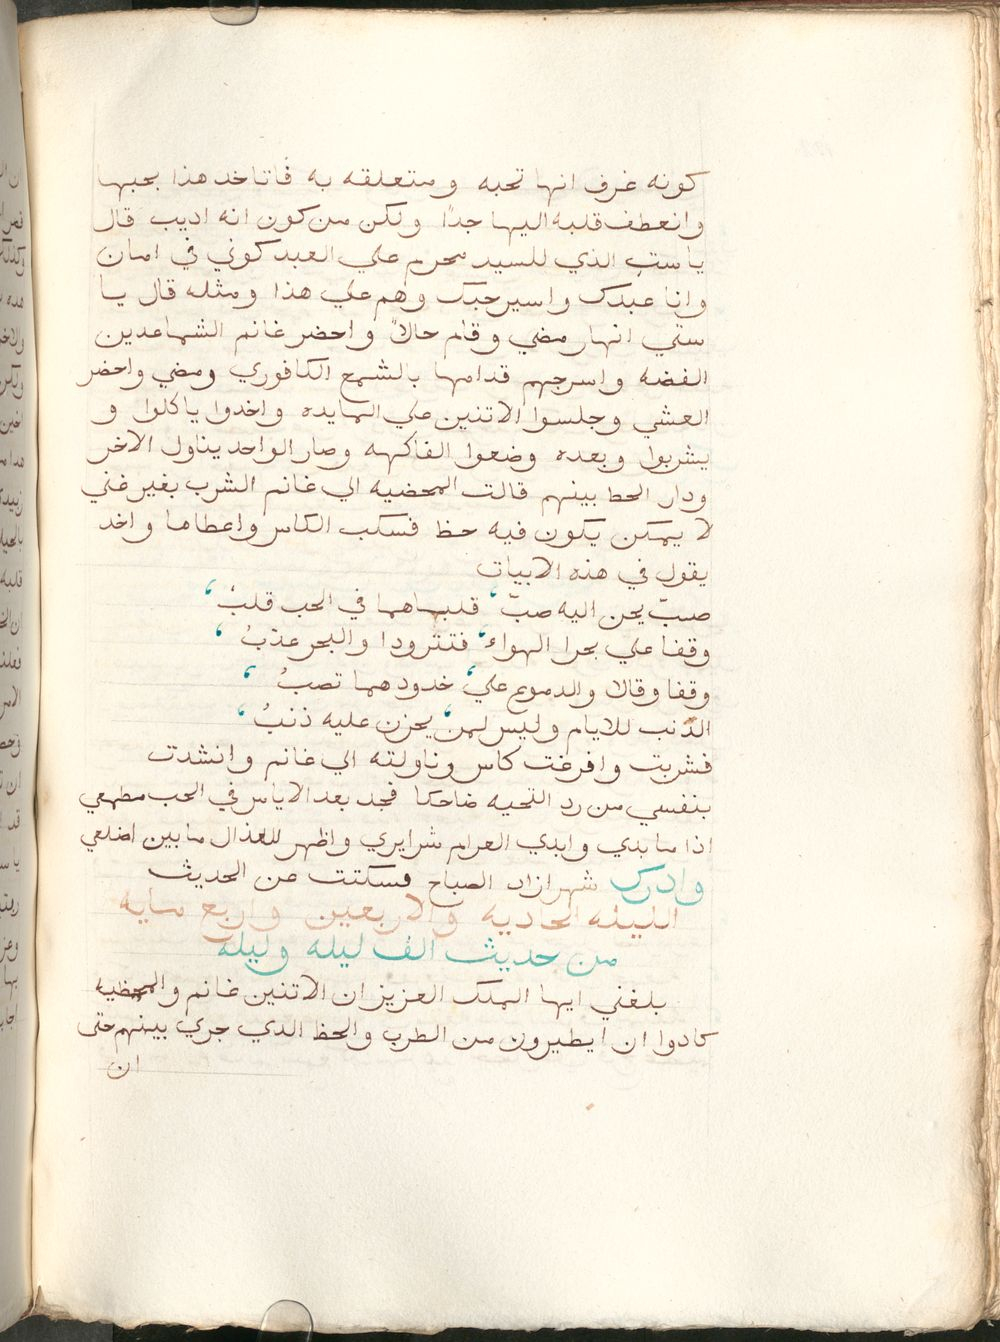 كونه عرف انها تحبه ومتعلقه به فاتاخد هذا بحبها
وانعطف قلبه اليها جدًا ولكن من كون انه اديب قال
ياستي الذي للسيد محرم علي العبد كوني في امان
وانا عبدك واسير حبك وهم علي هذا ومثله قال يا
ستي انهار مضي وقام حالاً واحضر غانم الشماعدين
الفضه واسرجهم قدامها بالشمع الكافوري ومضي واحضر
العشي وجلسوا الاتنين علي المايده واخدوا ياكلوا و
يشربوا وبعده وضعوا الفاكهه وصار الواحد يناول الاخر
ودار الحظ بينهم قالت المحضيه الي غانم الشرب بغير غني
لا يمكن يكون فيه حظ فسكب الكاس واعطاها واخد
يقول في هذه الابيات
صبّ يحن اليه صبّ، قلبهاهما في الحب قلبُ،
وقفا علي بحرا الهواء، فتترودا والبحر عذبُ،
وقفا وقالا والدموع علي، خدودهما تصبُ،
الذنب للايام وليس لمن، يحزن عليه ذنبُ،
فشربت وافرغت كاس وناولته الي غانم وانشدت
بنفسي من رد التحيه ضاحكا فجد بعد الاياس في الحب مطمعي
اذا مابدي وابدي الغرام شرايري واظهر للعذال مابين اضلعي
وادرك شهرازاد الصباح فسكتت عن الحديث
الليله الحاديه والاربعين واربع مايه
من حديث الف ليله وليله
بلغني ايها الملك العزيز ان الاتنين غانم والمحظيه
كادوا ان ايطيرون من الطرب والحظ الذي جري بينهم حتى
ان